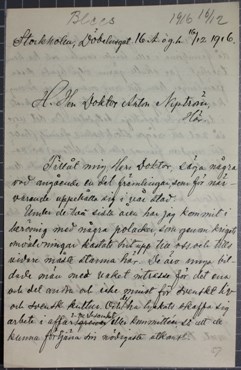 Blees 1916 16/12
Stockholm, Döbelnsgat. 16 A ö.g. h. 16/12 1916.
H. Herr Doktor Anton Nyström,
Här.
Tillåt mig, Herr Doktor, säga några
ord angående en del främlingar, som för när-
varande uppehålla sig i vår stad.
Under de två sista åren har jag kommit i
beröring med några polacker, som genom krigets
omvälvningar kastats hit upp till oss och tills
vidare måste stanna här. De äro mycket bil-
dade män med vaket intresse för det ena
och det andra och icke minst för svenskt liv
och svensk kultur. Och det har lyckats skaffa sig
arbete i affär eller kommittéer så att de
kunna förtjäna sin modesta utkomst.